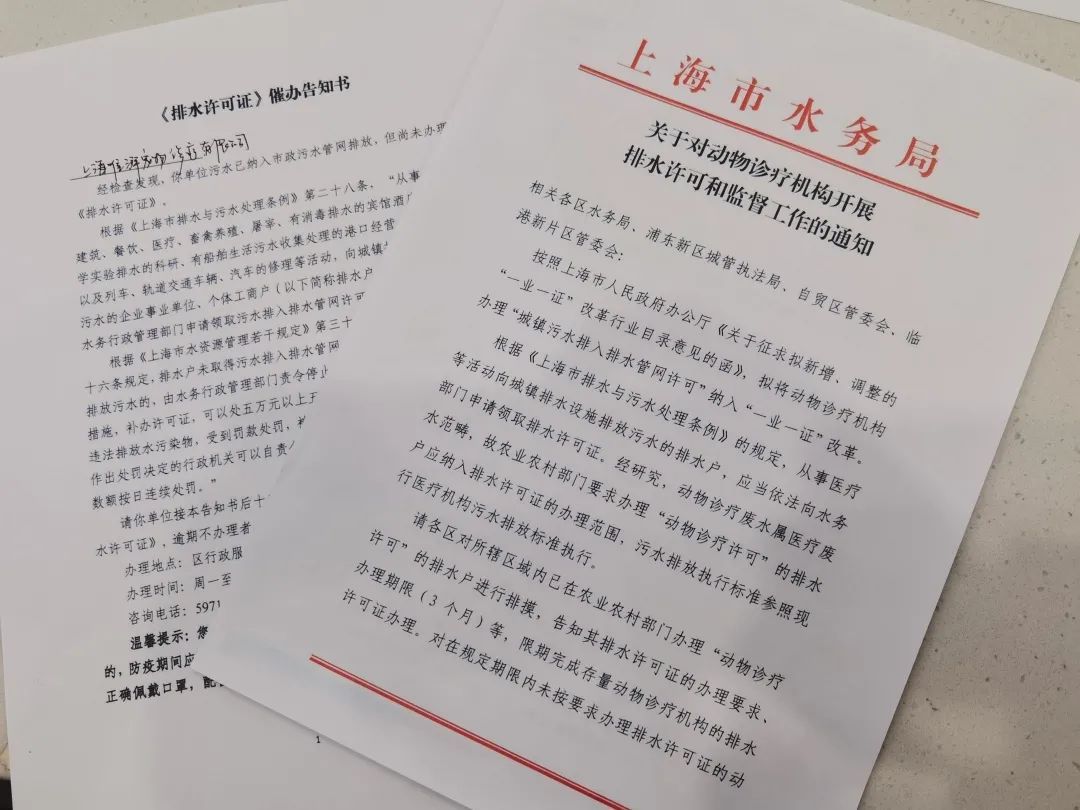 《排水许可证》催办告知书
上海 宠物诊疗有限公司
经检查发现，你单位污水已纳入市政污水管网排放，但尚未办理
《排水许可证》。
根据《上海市排水与污水处理条例》第二十八条，“从事
建筑、餐饮、医疗、畜禽养殖、屠宰、有消毒排水的宾馆酒店
学实验排水的科研、有船舶生活污水收集处理的港口经营
以及列车、轨道交通车辆、汽车的修理等活动，向城镇
污水的企业事业单位、个体工商户（以下简称排水户
水务行政管理部门申请领取污水排入排水管网许可
根据《上海市水资源管理若干规定》第三十
十六条规定，排水户未取得污水排入排水管网
排放污水的，由水务行政管理部门责令停止
措施，补办许可证，可以处五万元以上五
违法排放水污染物，受到罚款处罚，被
作出处罚决定的行政机关可以自责令
数额按日连续处罚。”
请你单位接本告知书后十
水许可证》，逾期不办理者
办理地点：区行政服
办理时间：周一至
咨询电话：5971
温馨提示：
的，防疫期间应
正确佩戴口罩，配
1
上海市水务局
关于对动物诊疗机构开展
排水许可和监督工作的通知
相关各区水务局、浦东新区城管执法局、自贸区管委会、临
港新片区管委会：
按照上海市人民政府办公厅《关于征求拟新增、调整的
“一业一证”改革行业目录意见的函》，拟将动物诊疗机构
办理“城镇污水排入排水管网许可”纳入“一业一证”改革。
根据《上海市排水与污水处理条例》的规定，从事医疗
等活动向城镇排水设施排放污水的排水户，应当依法向水务
部门申请领取排水许可证。经研究，动物诊疗废水属医疗废
水范畴，故农业农村部门要求办理“动物诊疗许可”的排水
户应纳入排水许可证的办理范围，污水排放执行标准参照现
行医疗机构污水排放标准执行。
请各区对所辖区域内已在农业农村部门办理“动物诊疗
许可”的排水户进行排摸，告知其排水许可证的办理要求、
办理期限（3个月）等，限期完成存量动物诊疗机构的排水
许可证办理。对在规定期限内未按要求办理排水许可证的动